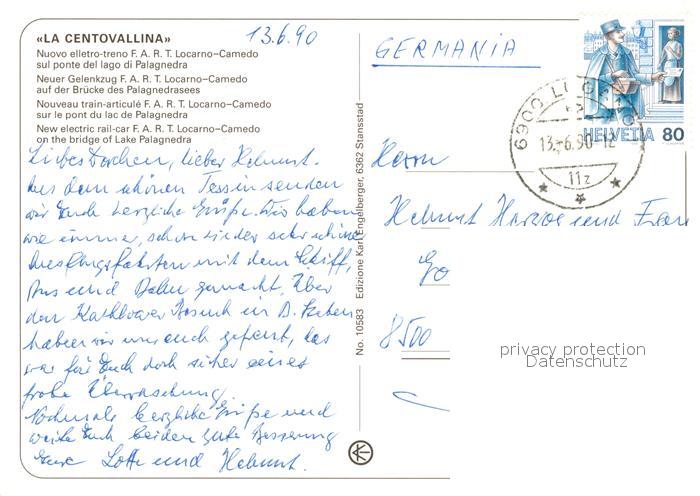 «LA CENTOVALLINA»
13.6.90
Nuovo elletro-treno F. A. R. T. Locarno–Camedo
sul ponte del lago di Palagnedra
Neuer Gelenkzug F. A. R. T. Locarno–Camedo
auf der Brücke des Palagnedrasees
Nouveau train-articulé F. A. R. T. Locarno–Camedo
sur le pont du lac de Palagnedra
New electric rail-car F. A. R. T. Locarno–Camedo
on the bridge of Lake Palagnedra
lieber Helmut.
Aus dem schönen Tessin senden
wir Euch herzliche Grüße. Wir haben
wie immer, schon wieder sehr schöne
Ausflugsfahrten mit dem Schiff,
Bus und Bahn gemacht. Über
den Besuch in B.
haben wir uns auch gefreut, das
war für Euch doch sicher eine
frohe Überraschung.
Nochmals herzliche Grüße und
weiter Euch beiden gute Besserung
Eure Lotte und Helmut.
No. 10583 Edizione Karl Engelberger, 6362 Stansstad
GERMANIA
6900 LUGANO
13.-6.90-12
11z
HELVETIA 80
Herrn
Helmut Herzog und Frau
Go
8500
privacy protection
Datenschutz